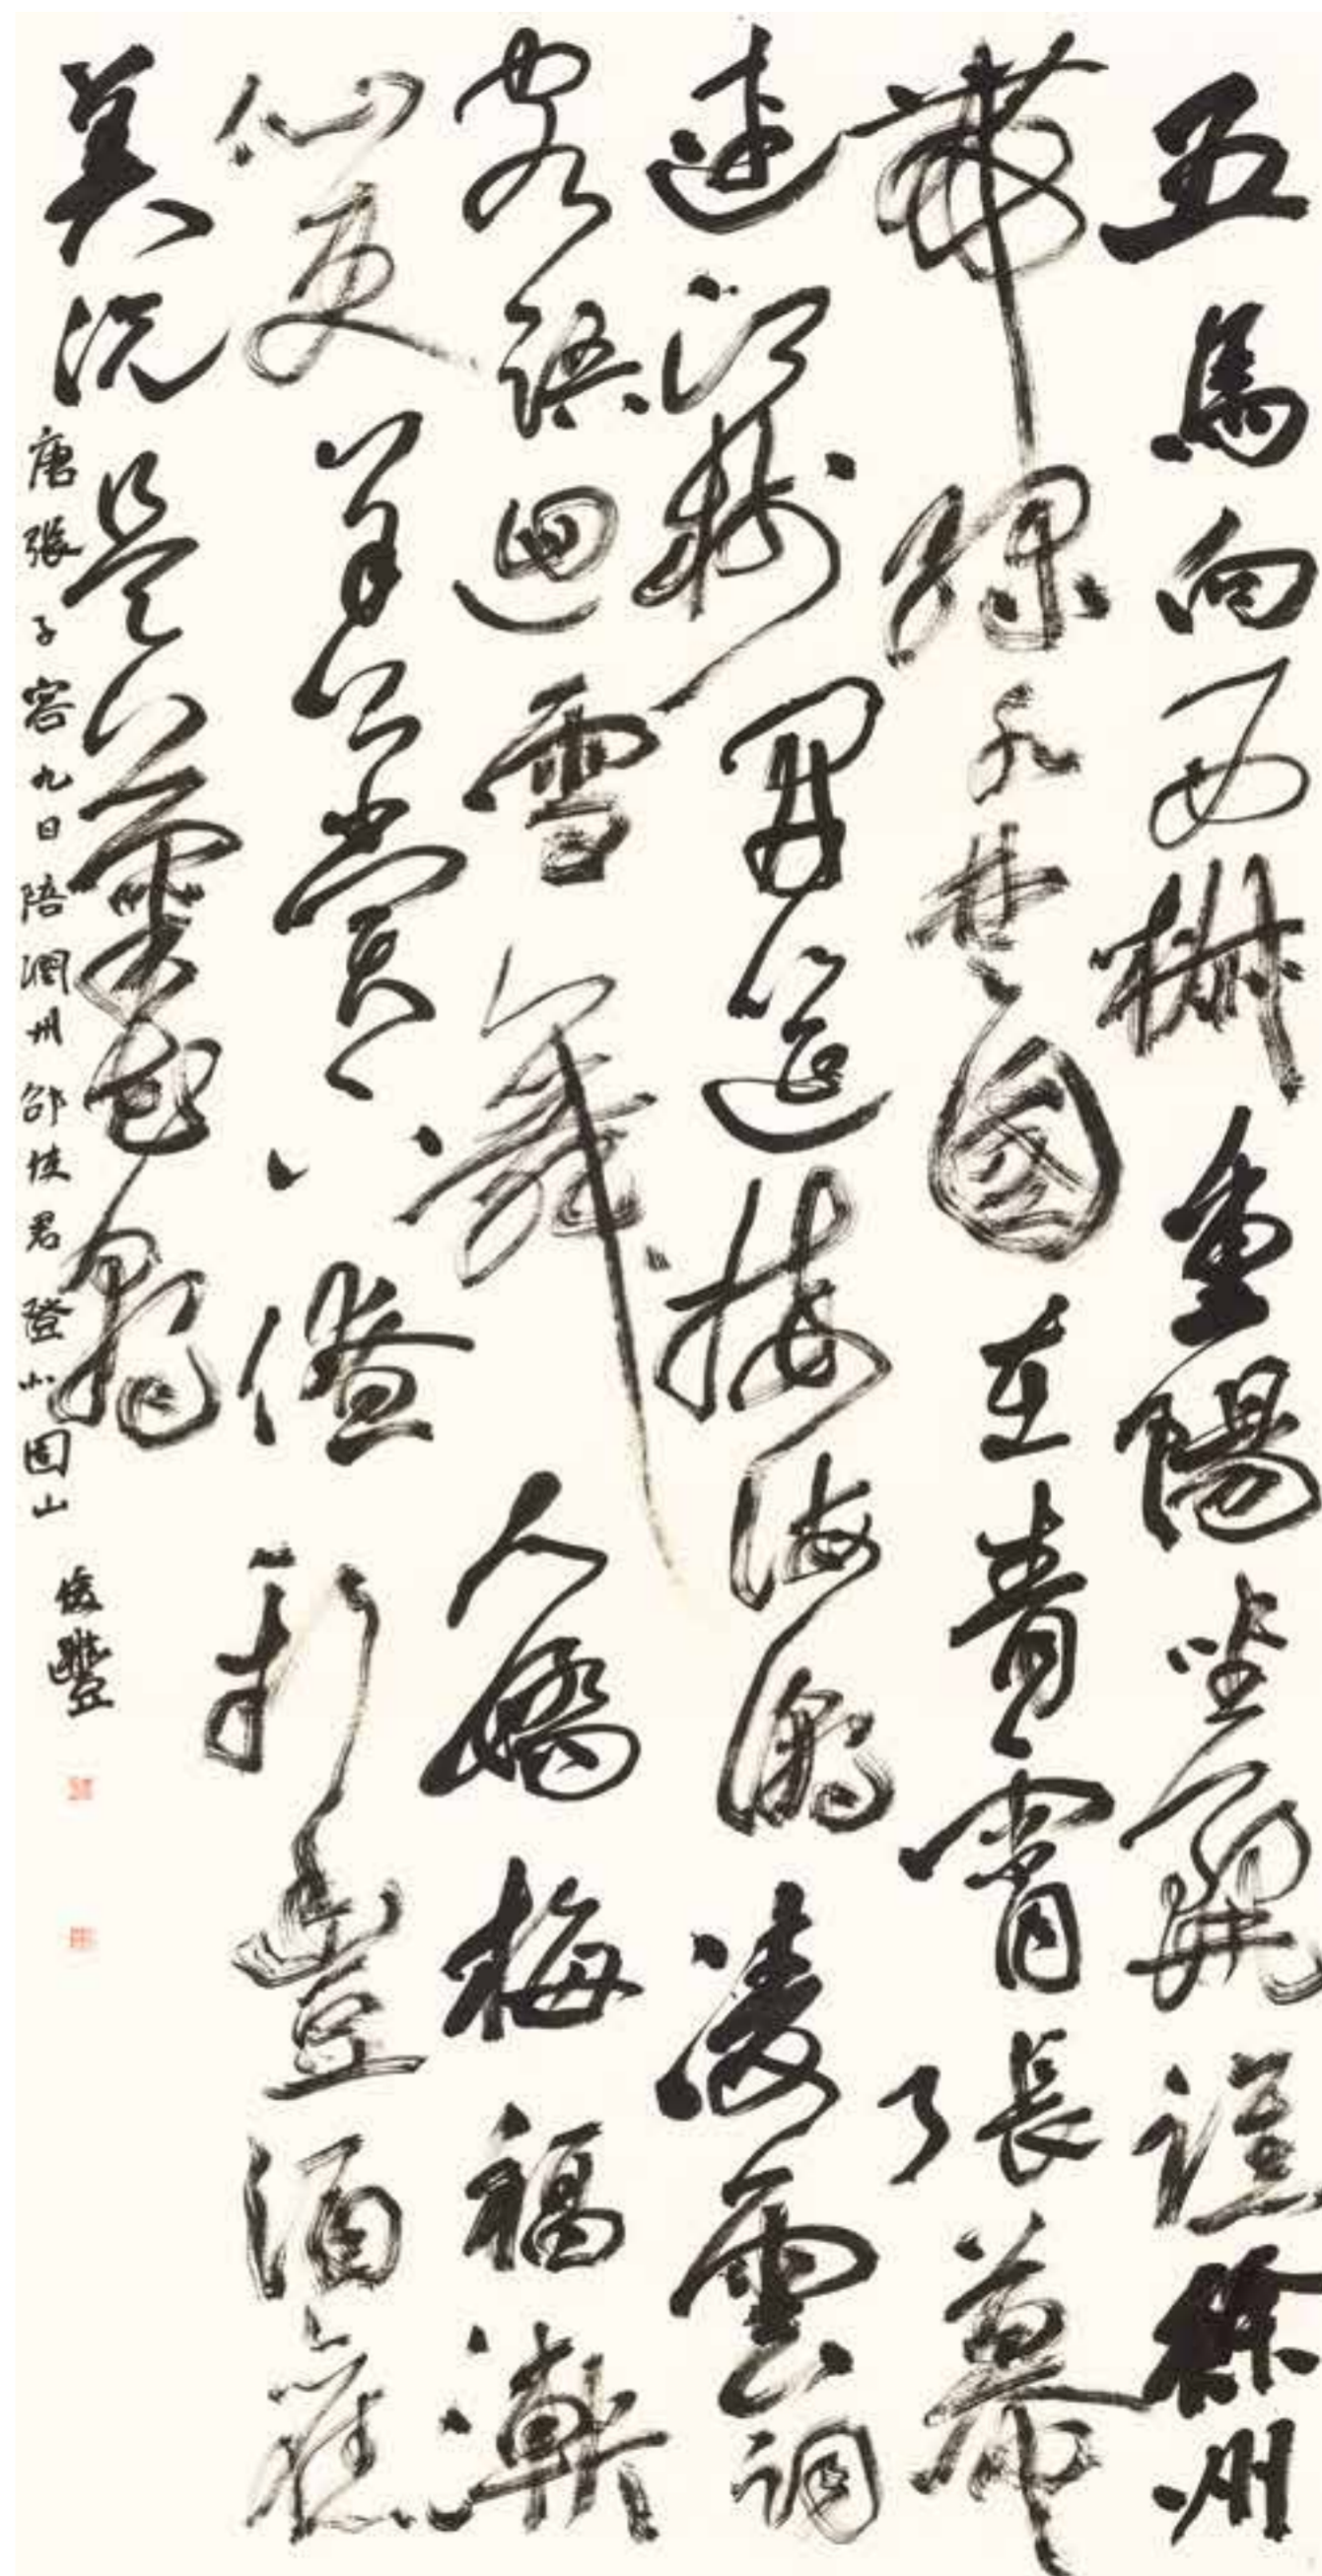 五馬向西椒重陽坐麗譙徐州
帶綠水楚國在青霄張幕
連江樹開筵接海潮凌雲詞
客語迴雪舞人嬌梅福慚
仙吏羊公賞下僚新豐酒舊
美況是菊花朝
唐張子容九日陪潤州邵使君登北固山